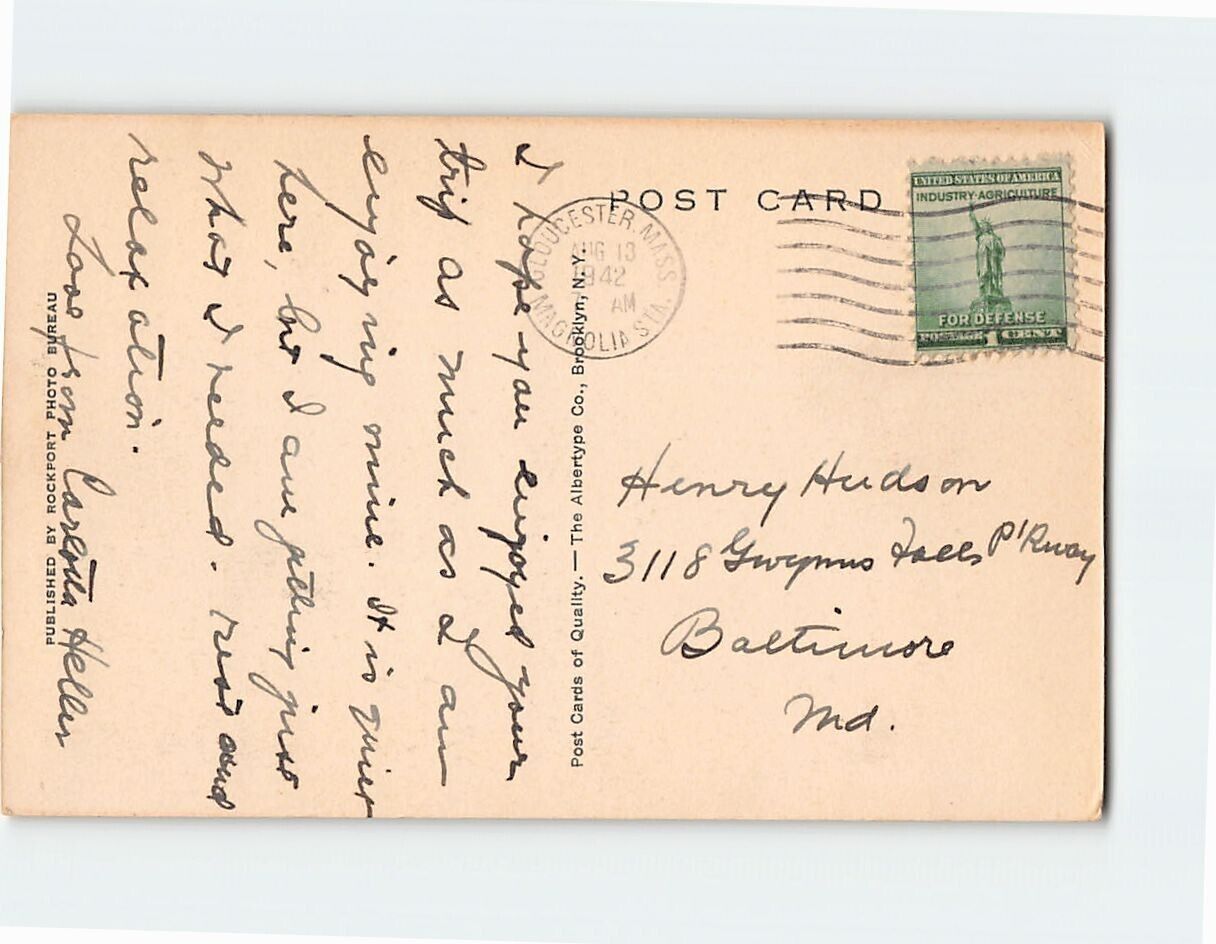 POST CARD
UNITED STATES OF AMERICA
INDUSTRY·AGRICULTURE
FOR DEFENSE
1
GLOUCESTER, MASS.
AUG 13
1942
AM
MAGNOLIA STA.
I hope you enjoyed your
trip as much as I am
enjoying mine. It is quiet
here, but I am getting just
what I needed. rest and
relaxation.
Love from Carlotta Heller
Henry Hudson
3118 Gwynns Falls P'Kway
Baltimore
Md.
Post Cards of Quality. — The Albertype Co., Brooklyn, N. Y.
PUBLISHED BY ROCKPORT PHOTO BUREAU